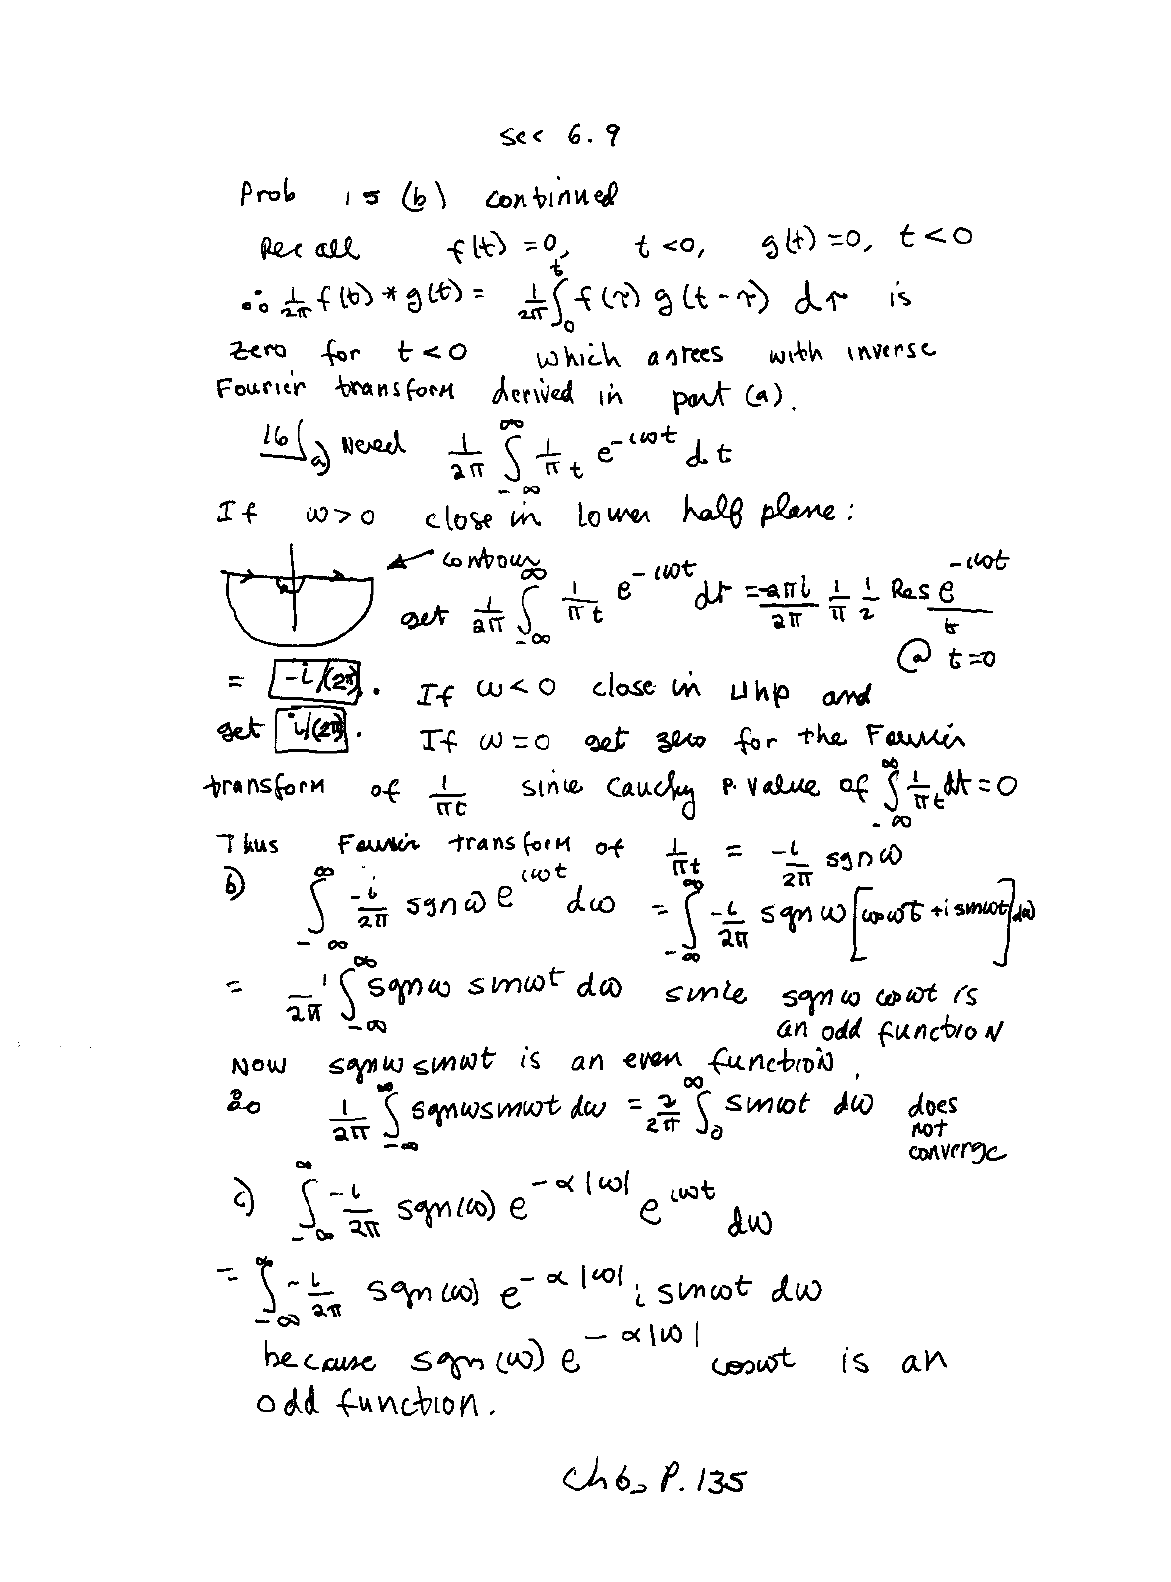 sec 6.9
Prob 15 (b) continued
Recall f(t) = 0, t < 0, g(t) = 0, t < 0
∴ 1/2π f(t) * g(t) = 1/2π ∫_0^t f(τ) g(t - τ) dτ is
zero for t < 0 which agrees with inverse
Fourier transform derived in part (a).
16) a) Need 1/2π ∫_{-∞}^{∞} 1/πt e^{-iωt} dt
If ω > 0 close in lower half plane:
contour
get 1/2π ∫_{-∞}^{∞} 1/πt e^{-iωt} dt = -2πi/2π 1/π 1/2 Res e^{-iωt}/t
@ t=0
= -i/(2π). If ω < 0 close in uhp and
get i/(2π). If ω = 0 get zero for the Fourier
transform of 1/πt since Cauchy P. value of ∫_{-∞}^{∞} 1/πt dt = 0
Thus Fourier transform of 1/πt = -i/2π sgn ω
b) ∫_{-∞}^{∞} -i/2π sgn ω e^{iωt} dω = ∫_{-∞}^{∞} -i/2π sgn ω [cos ωt + i sin ωt] dω
= 1/2π ∫_{-∞}^{∞} sgn ω sin ωt dω since sgn ω cos ωt is
an odd function
Now sgn ω sin ωt is an even function,
so 1/2π ∫_{-∞}^{∞} sgn ω sin ωt dω = 2/2π ∫_0^{∞} sin ωt dω does
not
converge
c) ∫_{-∞}^{∞} -i/2π sgn(ω) e^{-α|ω|} e^{iωt} dω
= ∫_{-∞}^{∞} -i/2π sgn(ω) e^{-α|ω|} i sin ωt dω
because sgn(ω) e^{-α|ω|} cos ωt is an
odd function.
Ch 6, P. 135